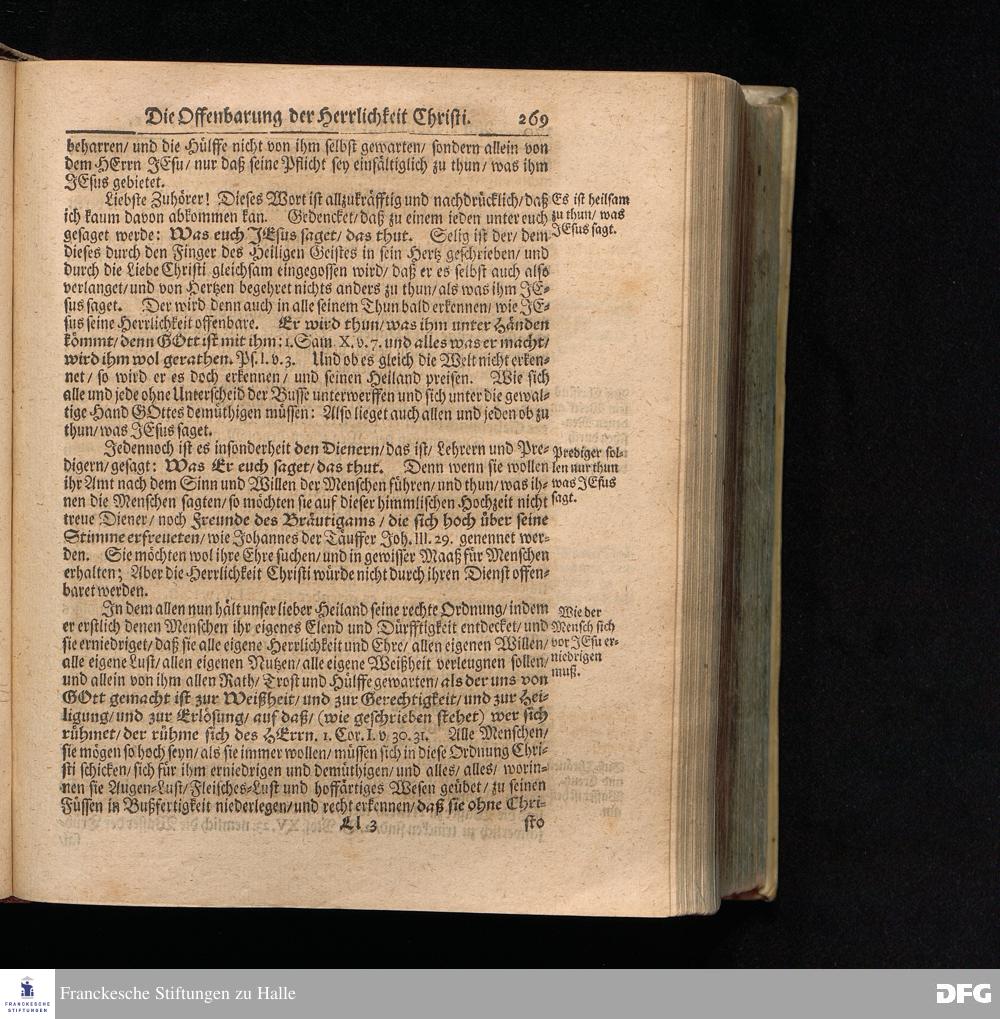 Die Offenbarung der Herrlichkeit Christi. 269
beharren/ und die Hülffe nicht von ihm selbst gewarten/ sondern allein von
dem HErrn JEsu/ nur daß seine Pflicht sey einfältiglich zu thun/ was ihm
JEsus gebietet.
Liebste Zuhörer! Dieses Wort ist allzukräfftig und nachdrücklich/ daß
ich kaum davon abkommen kan. Gedencket/ daß zu einem jeden unter euch
gesaget werde: Was euch JEsus saget/ das thut. Selig ist der/ dem
dieses durch den Finger des Heiligen Geistes in sein Hertz geschrieben/ und
durch die Liebe Christi gleichsam eingegossen wird/ daß er es selbst auch also
verlanget/ und von Hertzen begehret nichts anders zu thun/ als was ihm JE-
sus saget. Der wird denn auch in alle seinem Thun bald erkennen/ wie JE-
sus seine Herrlichkeit offenbare. Er wird thun/ was ihm unter Händen
kömmt/ denn GOtt ist mit ihm: 1. Sam. X. v. 7. und alles was er macht/
wird ihm wol gerathen. Ps. I. v. 3. Und ob es gleich die Welt nicht erken-
net/ so wird er es doch erkennen/ und seinen Heiland preisen. Wie sich
alle und jede ohne Unterscheid der Busse unterwerffen und sich unter die gewal-
tige Hand GOttes demüthigen müssen: Also lieget auch allen und jeden ob zu
thun/ was JEsus saget.
Es ist heilsam
zu thun/ was
JEsus sagt.
Jedennoch ist es insonderheit den Dienern/ das ist/ Lehrern und Pre-
digern/ gesagt: Was Er euch saget/ das thut. Denn wenn sie wollen
ihr Amt nach dem Sinn und Willen der Menschen führen/ und thun/ was ih-
nen die Menschen sagten/ so möchten sie auf dieser himmlischen Hochzeit nicht
treue Diener/ noch Freunde des Bräutigams/ die sich hoch über seine
Stimme erfreueten/ wie Johannes der Täuffer Joh. III. 29. genennet wer-
den. Sie möchten wol ihre Ehre suchen/ und in gewisser Maaß für Menschen
erhalten; Aber die Herrlichkeit Christi würde nicht durch ihren Dienst offen-
baret werden.
Prediger sol-
len nur thun
was JEsus
sagt.
In dem allen nun hält unser lieber Heiland seine rechte Ordnung/ indem
er erstlich denen Menschen ihr eigenes Elend und Dürfftigkeit entdecket/ und
sie erniedriget/ daß sie alle eigene Herrlichkeit und Ehre/ allen eigenen Willen/
alle eigene Lust/ allen eigenen Nutzen/ alle eigene Weißheit verleugnen sollen/
und allein von ihm allen Rath/ Trost und Hülffe gewarten/ als der uns von
GOtt gemacht ist zur Weißheit/ und zur Gerechtigkeit/ und zur Hei-
ligung/ und zur Erlösung/ auf daß/ (wie geschrieben stehet) wer sich
rühmet/ der rühme sich des HErrn. 1. Cor. I. v 30. 31. Alle Menschen/
sie mögen so hoch seyn/ als sie immer wollen/ müssen sich in diese Ordnung Chri-
sti schicken/ sich für ihm erniedrigen und demüthigen/ und alles/ alles/ worin-
nen sie Augen-Lust/ Fleisches-Lust und hoffärtiges Wesen geübet/ zu seinen
Füssen in Bußfertigkeit niederlegen/ und recht erkennen/ daß sie ohne Chri-
Wie der
Mensch sich
vor JEsu er-
niedrigen
muß.
Ll 3 sto
FRANCKESCHE
STIFTUNGEN
Franckesche Stiftungen zu Halle
DFG